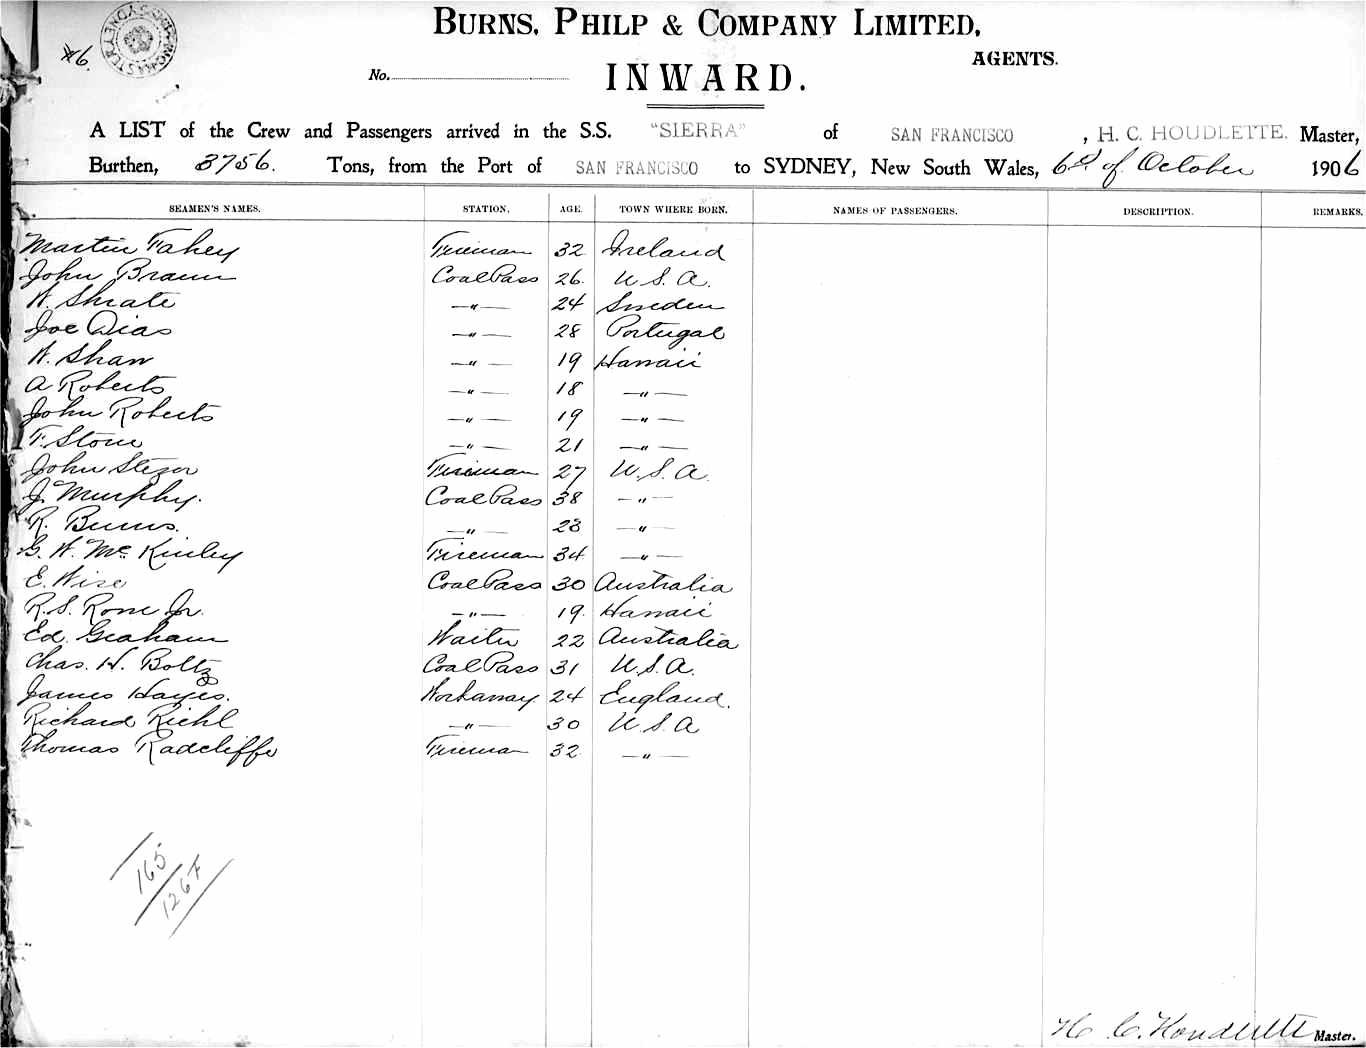 BURNS, PHILP & COMPANY LIMITED,
AGENTS.
No.
INWARD.
A LIST of the Crew and Passengers arrived in the S.S. "SIERRA" of SAN FRANCISCO, H. C. HOUDLETTE. Master,
Burthen, 3756. Tons, from the Port of SAN FRANCISCO to SYDNEY, New South Wales, 6th of October 1906
SEAMEN'S NAMES. STATION. AGE. TOWN WHERE BORN. NAMES OF PASSENGERS. DESCRIPTION. REMARKS.
Martin Fahey Fireman 32 Ireland
John Braun Coal Pass 26. U.S.A.
W. Shrate —"— 24 Sweden
Joe Dias —"— 28 Portugal
W. Shaw —"— 19 Hawaii
A Roberts —"— 18 —"—
John Roberts —"— 19 —"—
F. Stone —"— 21 —"—
John Stezor Fireman 27 U.S.A.
J. Murphy. Coal Pass 38 —"—
R. Burns. —"— 28 —"—
G. W. McKinley Fireman 34 —"—
E. Wise Coal Pass 30 Australia
R. S. Rowe Jr. —"— 19. Hawaii
Ed. Graham Waiter 22 Australia
Chas. H. Boltz Coal Pass 31 U.S.A.
James Hayes. Workaway 24 England.
Richard Riehl —"— 30 U.S.A
Thomas Radcliffe Fireman 32 —"—
165
126F
H. C. Houdlette Master.